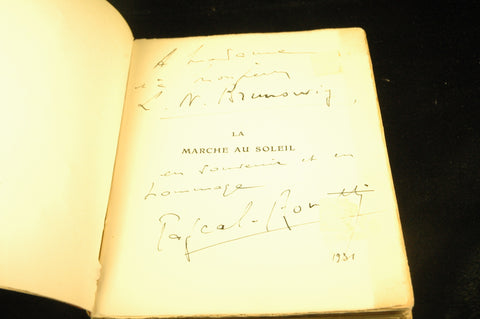 A Madame
et à Monsieur
L. N. Brunswig,
LA
MARCHE AU SOLEIL
en souvenir et en
hommage
Pascal-Bonetti
1931